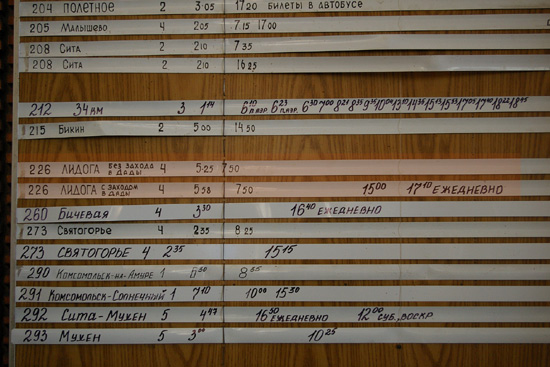 204 ПОЛЕТНОЕ 2 3 05 17 20 БИЛЕТЫ В АВТОБУСЕ
205 МАЛЫШЕВО 4 2 05 7 15 17 00
208 СИТА 2 2 10 7 35
208 СИТА 2 2 10 16 25
212 34 КМ 3
215 БИКИН 2 5 00 14 50
226 ЛИДОГА БЕЗ ЗАХОДА В ДАДЫ 4 5 25 7 50
226 ЛИДОГА С ЗАХОДОМ В ДАДЫ 4 5 58 7 50 15 00 17 10 ЕЖЕДНЕВНО
260 БИЧЕВАЯ 4 3 30 16 40 ЕЖЕДНЕВНО
273 СВЯТОГОРЬЕ 4 2 35 8 25
273 СВЯТОГОРЬЕ 4 2 35 15 15
290 КОМСОМОЛЬСК-НА-АМУРЕ 1 6 30 8 35
291 КОМСОМОЛЬСК-СОЛНЕЧНЫЙ 1 7 10 10 00 15 30
292 СИТА-МУХЕН 5 4 47 16 50 ЕЖЕДНЕВНО 12 00 СУБ., ВОСКР
293 МУХЕН 5 3 00 10 25